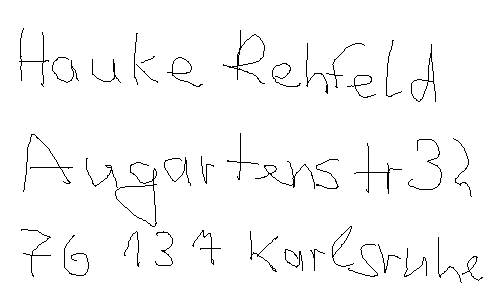 Hauke Rehfeld
Augartenstr 32
76 137 Karlsruhe